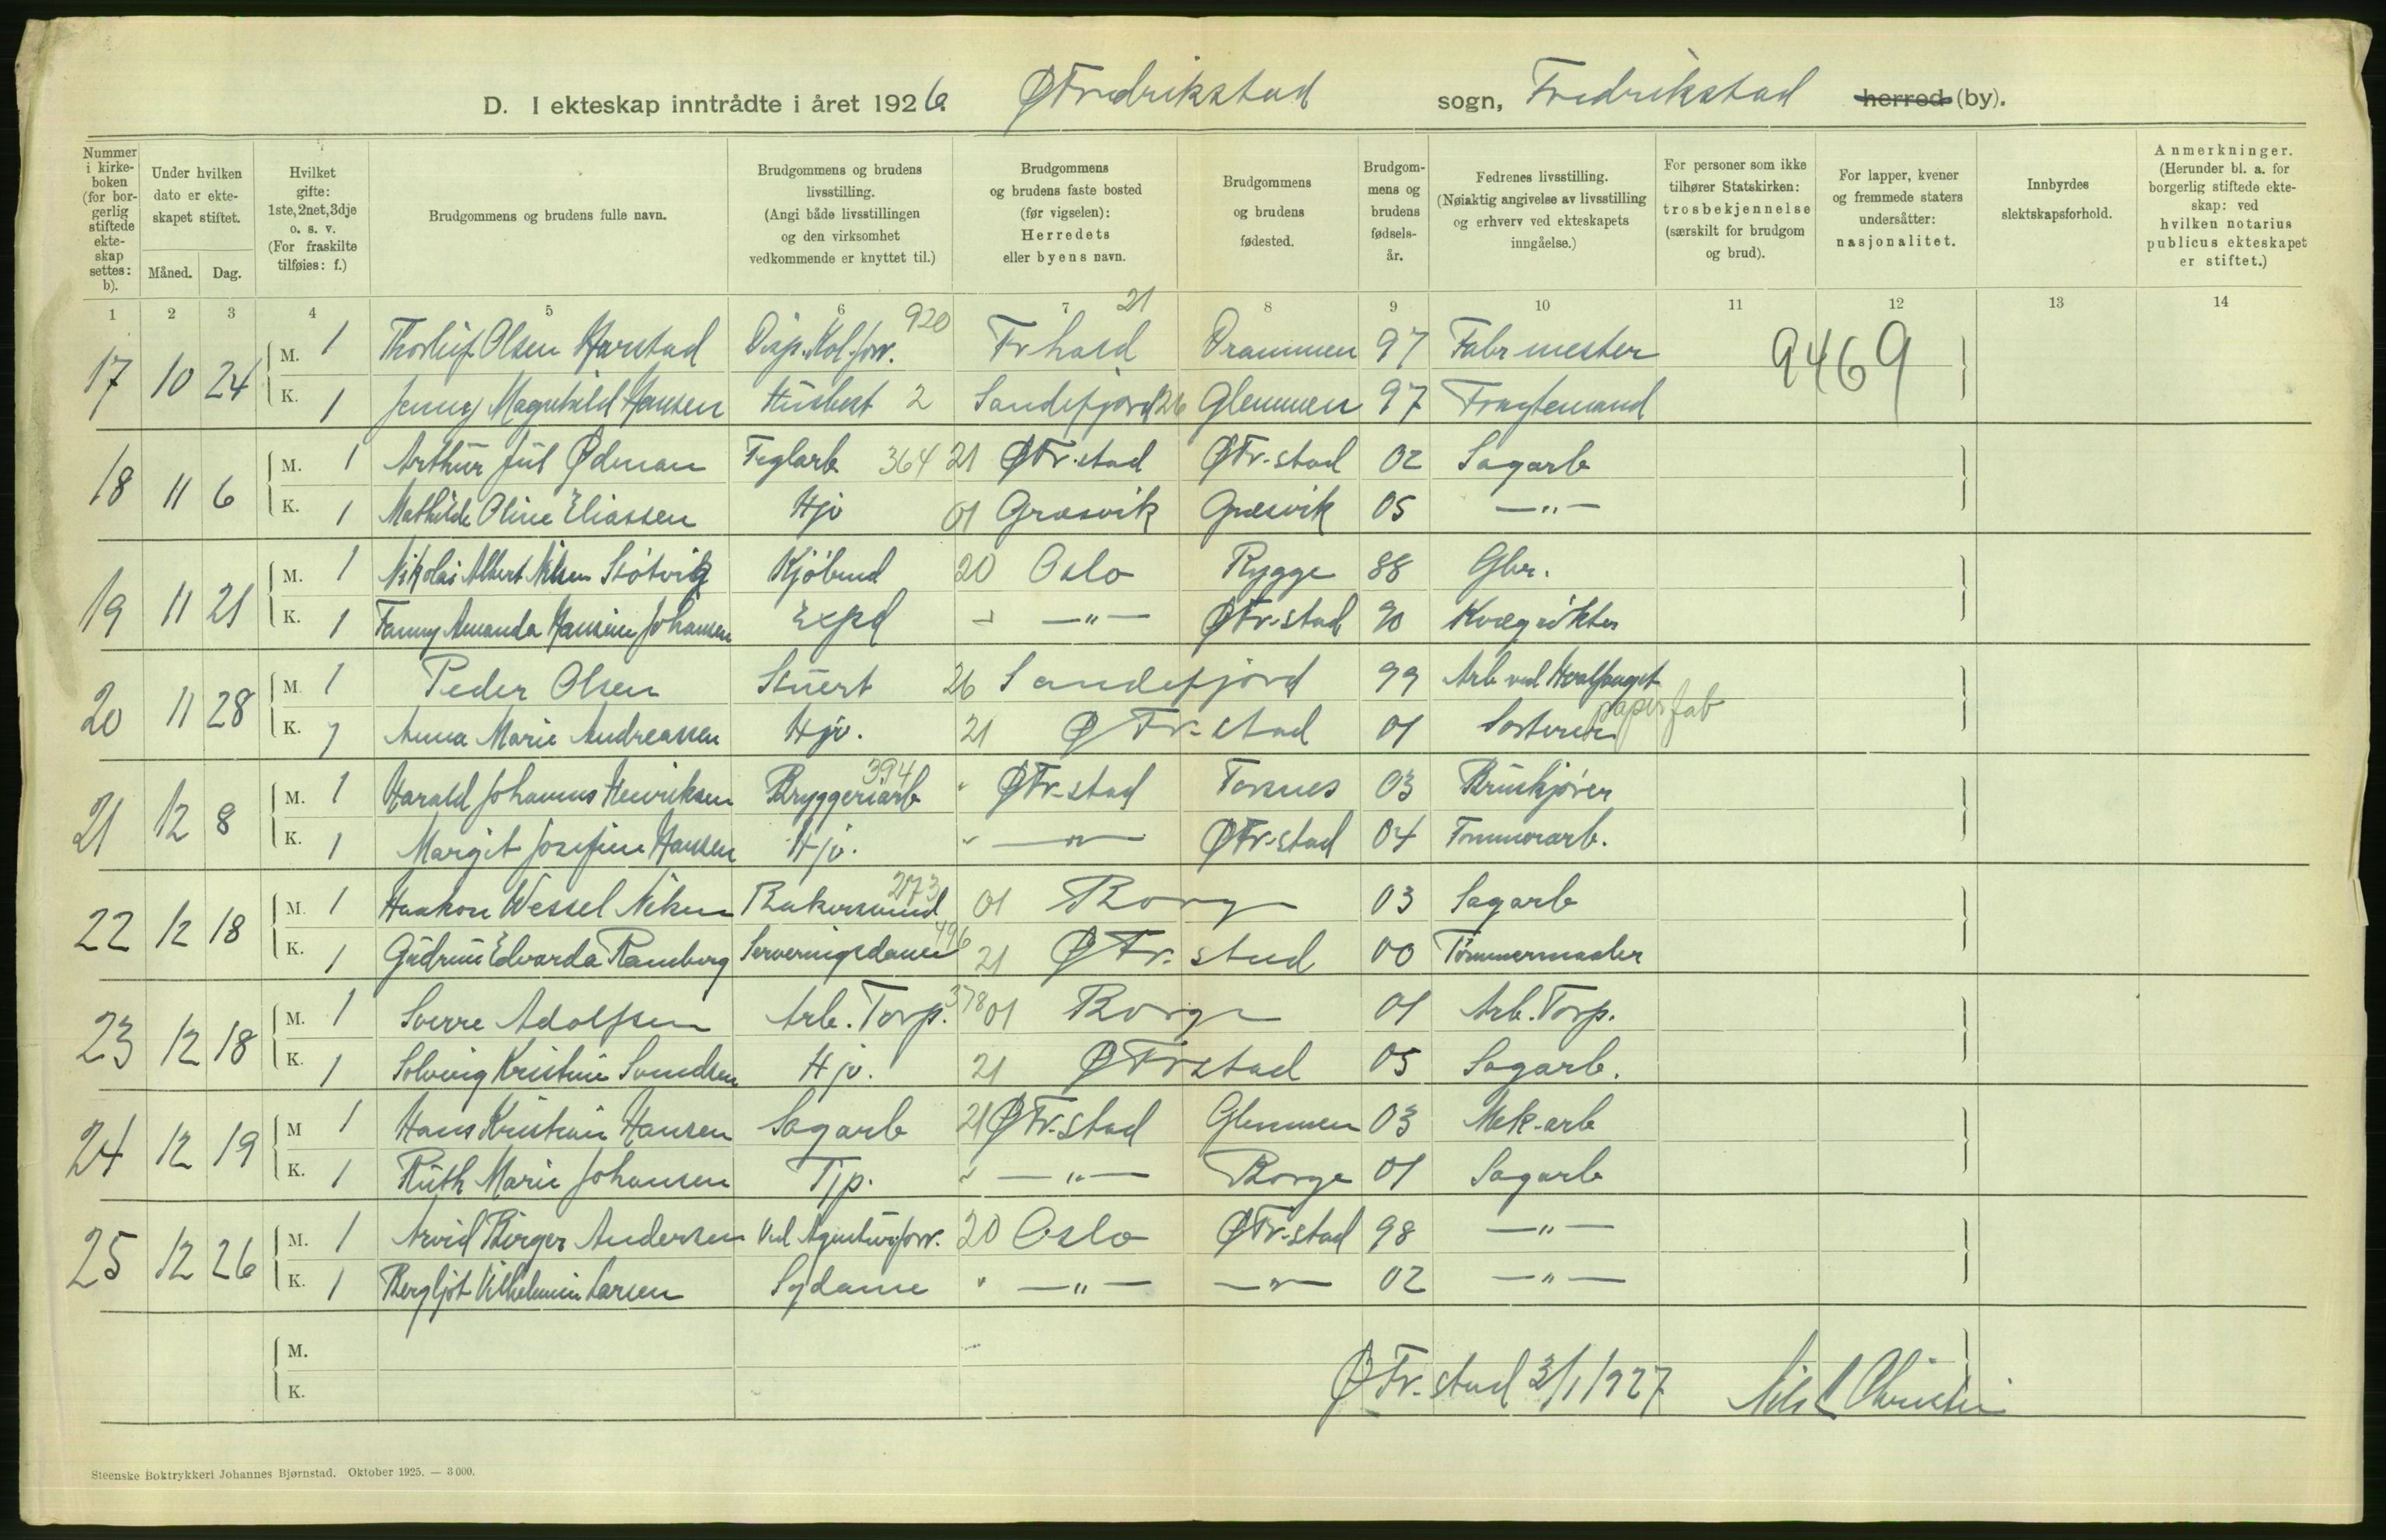 D. I ekteskap inntrådte i året 1926. ØFredrikstad sogn, Fredrikstad herred (by).
Nummer i kirke-boken (for bor-gerlig stiftede ekte-skap settes: b).
Under hvilken dato er ekte-skapet stiftet.
Måned. Dag.
Hvilket gifte: 1ste, 2net, 3dje o. s. v. (For fraskilte tilføies: f.)
Brudgommens og brudens fulle navn.
Brudgommens og brudens livsstilling. (Angi både livsstillingen og den virksomhet vedkommende er knyttet til.)
Brudgommens og brudens faste bosted (før vigselen): Herredets eller byens navn.
Brudgommens og brudens fødested.
Brudgom-mens og brudens fødsels-år.
Fedrenes livsstilling. (Nøiaktig angivelse av livsstilling og erhverv ved ekteskapets inngåelse.)
For personer som ikke tilhører Statskirken: trosbekjennelse (særskilt for brudgom og brud).
For lapper, kvener og fremmede staters undersåtter: nasjonalitet.
Innbyrdes slektskapsforhold.
Anmerkninger. (Herunder bl. a. for borgerlig stiftede ekte-skap: ved hvilken notarius publicus ekteskapet er stiftet.)
1 2 3 4 5 6 7 8 9 10 11 12 13 14
17 10 24 M. 1 Thorleif Olsen Harstad Disp. Kol. forr. 920 Fr.hald 21 Drammen 97 Fabr mester 9469
K. 1 Jenny Magnhild Hansen Husbest 2 Sandefjord 26 Glemmen 97 Fragtemand
18 11 6 M. 1 Arthur Jul Ødman Teglarb 364 21 ØFr.stad ØFr.stad 02 Sagarb
K. 1 Mathilde Oline Eliassen Hjv 01 Græsvik Græsvik 05 — " —
19 11 21 M. 1 Nikolai Albert Nilsen Slótvig Kjöbmd 20 Oslo Rygge 88 Gbr.
K. 1 Fanny Amanda Hansine Johansen Expd — " — ØFr.stad 90 Kvægrökter
20 11 28 M. 1 Peder Olsen Stuert 26 Sandefjord 99 Arb ved Hvalfanget
K. 1 Anna Marie Andreassen Hjv. 21 ØFr-stad 01 Sorterer papirfab
21 12 8 M. 1 Harald Johannes Henriksen Bryggeriarb 394 " ØFr-stad Torsnes 03 Bruskjører
K. 1 Margit Josefine Hansen Hjv. " — " — ØFr.stad 04 Tommerarb.
22 12 18 M. 1 Haakon Wessel Nilsen Bakersvend 273 01 Borge 03 Sagarb
K. 1 Gudrun Edvarda Ramberg Serveringsdame 496 21 ØFr.stad 00 Tömmermaaler
23 12 18 M. 1 Sverre Adolfsen Arb. Torp. 378 01 Borge 01 Arb. Torp.
K. 1 Solveig Kristine Svendsen Hjv. 21 ØFrstad 05 Sagarb.
24 12 19 M 1 Hans Kristian Hansen Sagarb 21 ØFr.stad Glemmen 03 Mek-arb
K. 1 Ruth Marie Johansen Tjp. " — " — Borge 01 Sagarb
25 12 26 M. 1 Arvid Birger Andersen Ved Agenturforr. 20 Oslo ØFr-stad 98 — " —
K. 1 Bergljót Vilhelmine Larsen Sydame " — " — — " — 02 — " —
M.
K.
ØFr.stad 3/1/1927
Steenske Boktrykkeri Johannes Bjørnstad. Oktober 1925. — 3 000.